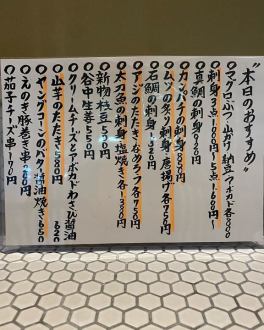 "本日のおすすめ"
○マグロぶつ・山かけ・納豆・アボカド各800円
○刺身3点1800円〜5点1600円〜
○真鯛の刺身
○カンパチの刺身
○ムツの炙り刺身・唐揚げ各750円
○石鯛の刺身
○アジのたたき・なめろう・フライ各750円
○太刀魚の刺身・塩焼き各1300円
○新物枝豆550円
○谷中生姜550円
○クリームチーズとアボカドわさび醤油620
○山芋のたたき580円
○ヤングコーンのバター醤油焼き650
○えのき豚巻き串
茄子チーズ串170円